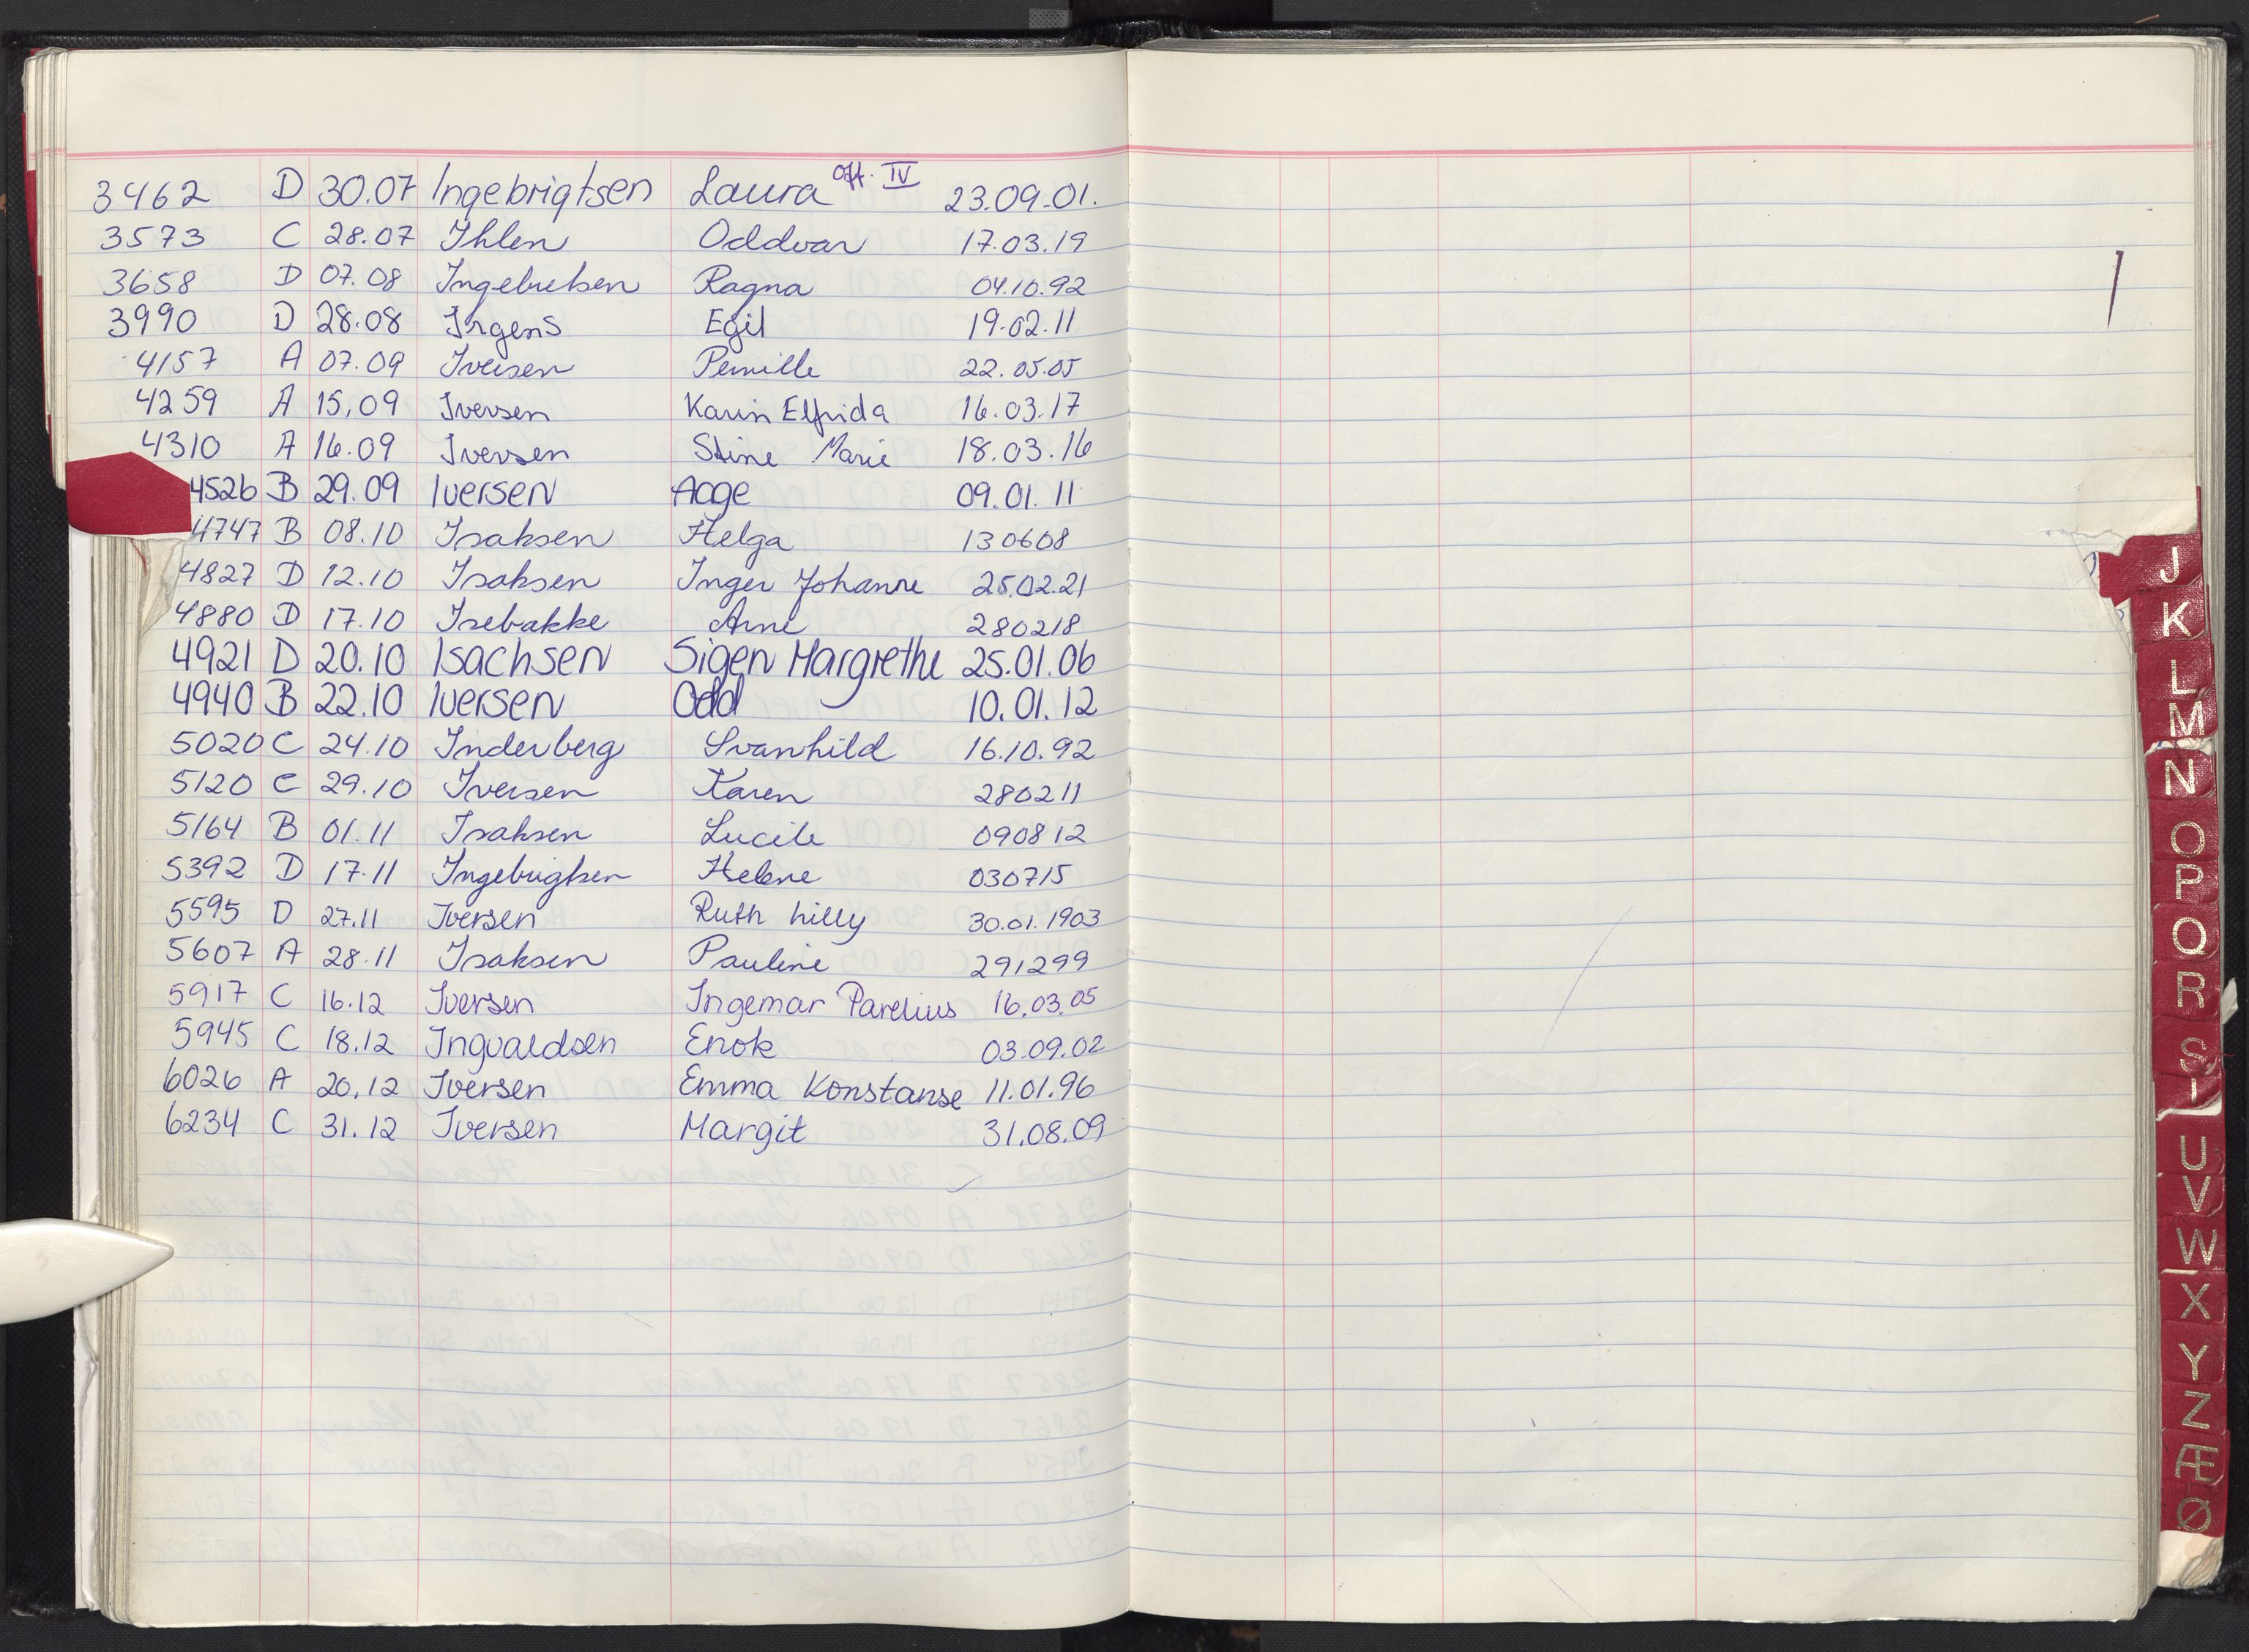 3462 D 30.07 Ingebrigtsen Laura Oft. IV 23.09.01.
3573 C 28.07 Ihlen Oddvar 17.03.19
3658 D 07.08 Ingebretsen Ragna 04.10.92
3990 D 28.08 Irgens Egil 19.02.11
4157 A 07.09 Iversen Pernille 22.05.05
4259 A 15.09 Iversen Karin Elfrida 16.03.17
4310 A 16.09 Iversen Stine Marie 18.03.16
4526 B 29.09 Iversen Aage 09.01.11
4747 B 08.10 Isaksen Helga 130608
4827 D 12.10 Isaksen Inger Johanne 25.02.21
4880 D 17.10 Isebakke Arne 280218
4921 D 20.10 Isachsen Sigen Margrethe 25.01.06
4940 B 22.10 Iversen Odd 10.01.12
5020 C 24.10 Inderberg Svanhild 16.10.92
5120 C 29.10 Iversen Karen 280211
5164 B 01.11 Isaksen Lucile 090812
5392 D 17.11 Ingebrigtsen Helene 030715
5595 D 27.11 Iversen Ruth Lilly 30.01.1903
5607 A 28.11 Isaksen Pauline 291299
5917 C 16.12 Iversen Ingemar Parelius 16.03.05
5945 C 18.12 Ingvaldsen Enok 03.09.02
6026 A 20.12 Iversen Emma Konstanse 11.01.96
6234 C 31.12 Iversen Margit 31.08.09
J
K
L
M
N
O
P
Q
R
S
T
U
V
W
X
Y
Z
Æ
Ø